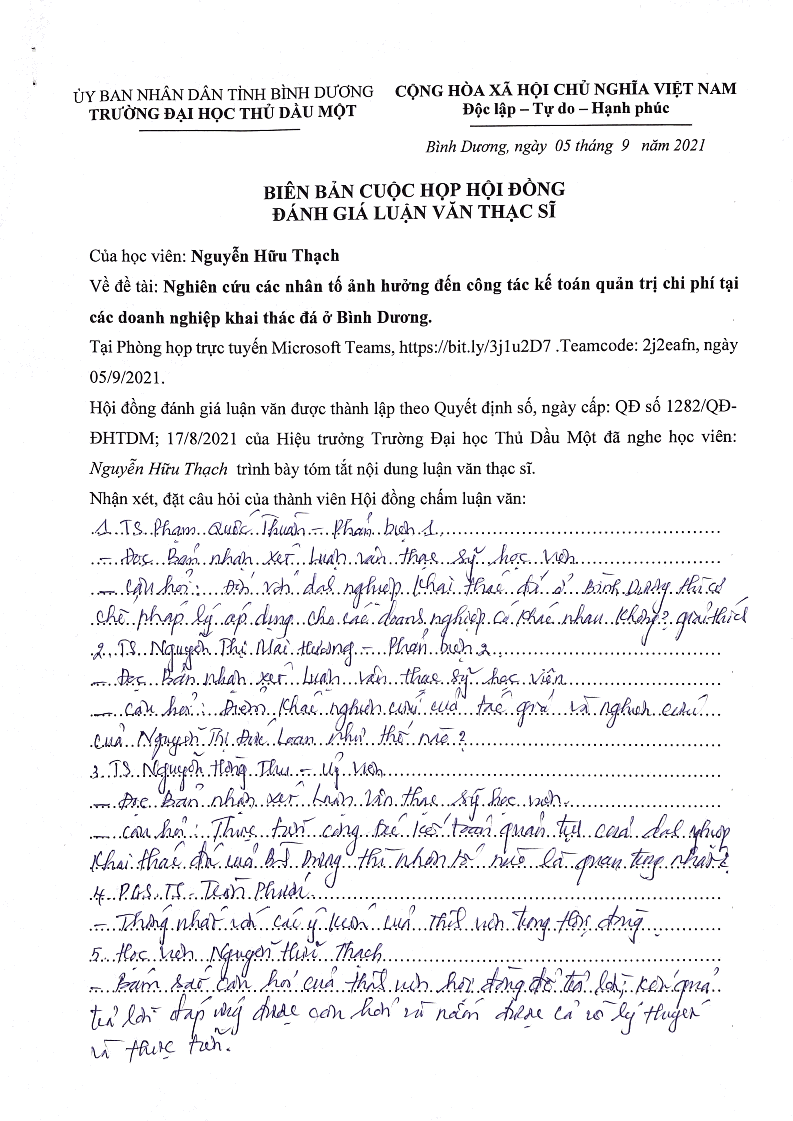 ỦY BAN NHÂN DÂN TỈNH BÌNH DƯƠNG
TRƯỜNG ĐẠI HỌC THỦ DẦU MỘT
CỘNG HÒA XÃ HỘI CHỦ NGHĨA VIỆT NAM
Độc lập – Tự do – Hạnh phúc
Bình Dương, ngày 05 tháng 9 năm 2021
BIÊN BẢN CUỘC HỌP HỘI ĐỒNG
ĐÁNH GIÁ LUẬN VĂN THẠC SĨ
Của học viên: Nguyễn Hữu Thạch
Về đề tài: Nghiên cứu các nhân tố ảnh hưởng đến công tác kế toán quản trị chi phí tại
các doanh nghiệp khai thác đá ở Bình Dương.
Tại Phòng họp trực tuyến Microsoft Teams, https://bit.ly/3j1u2D7 .Teamcode: 2j2eafn, ngày
05/9/2021.
Hội đồng đánh giá luận văn được thành lập theo Quyết định số, ngày cấp: QĐ số 1282/QĐ-
ĐHTDM; 17/8/2021 của Hiệu trưởng Trường Đại học Thủ Dầu Một đã nghe học viên:
Nguyễn Hữu Thạch trình bày tóm tắt nội dung luận văn thạc sĩ.
Nhận xét, đặt câu hỏi của thành viên Hội đồng chấm luận văn:
1. TS. Phạm Quốc Thuần – Phản biện 1
– Đọc Bản nhận xét luận văn thạc sỹ học viên
– Câu hỏi: Đối với doanh nghiệp khai thác đá ở Bình Dương thì cơ
chế pháp lý áp dụng cho các doanh nghiệp có khác nhau không? giải thích
2. TS. Nguyễn Thị Mai Hương – Phản biện 2
– Đọc Bản nhận xét luận văn thạc sỹ học viên
– Câu hỏi: Điểm khác nghiên cứu của tác giả và nghiên cứu
của Nguyễn Thị Đức Loan như thế nào?
3. TS. Nguyễn Hồng Thu – Uỷ viên
– Đọc Bản nhận xét luận văn thạc sỹ học viên.
– Câu hỏi: Thực tiễn công tác kế toán quản trị của nghiệp
khai thác đá của Dương thì nhân tố nào là quan trọng nhất?
4. PGS. TS. Trần Phước
– Thống nhất với các ý kiến của viên trong Hội đồng
5. Học viên Nguyễn Hữu Thạch
– Bám sát câu hỏi của viên hội đồng để trả lời, kết quả
trả lời đáp ứng được câu hỏi và nắm được cả về lý thuyết
và thực tiễn.